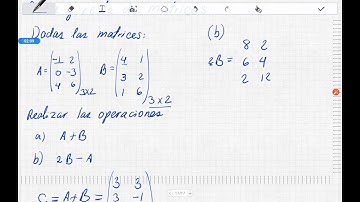 Dadas las matrices:
A = ( -1 2
0 -3
4 6 ) 3x2
B = ( 4 1
3 2
1 6 ) 3x2
Realizar las operaciones
a) A+B
b) 2B-A
C = A+B = ( 3 3
3 -1
(b)
2B = 8 2
6 4
2 12